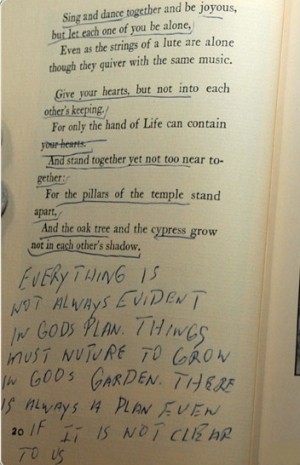 Sing and dance together and be joyous,
but let each one of you be alone,
Even as the strings of a lute are alone
though they quiver with the same music.
Give your hearts, but not into each
other's keeping.
For only the hand of Life can contain
your hearts.
And stand together yet not too near to-
gether:
For the pillars of the temple stand
apart,
And the oak tree and the cypress grow
not in each other's shadow.
EVERYTHING IS
NOT ALWAYS EVIDENT
IN GODS PLAN. THINGS
MUST NUTURE TO GROW
IN GODS GARDEN. THERE
IS ALWAYS A PLAN EVEN
20 IF IT IS NOT CLEAR
TO US